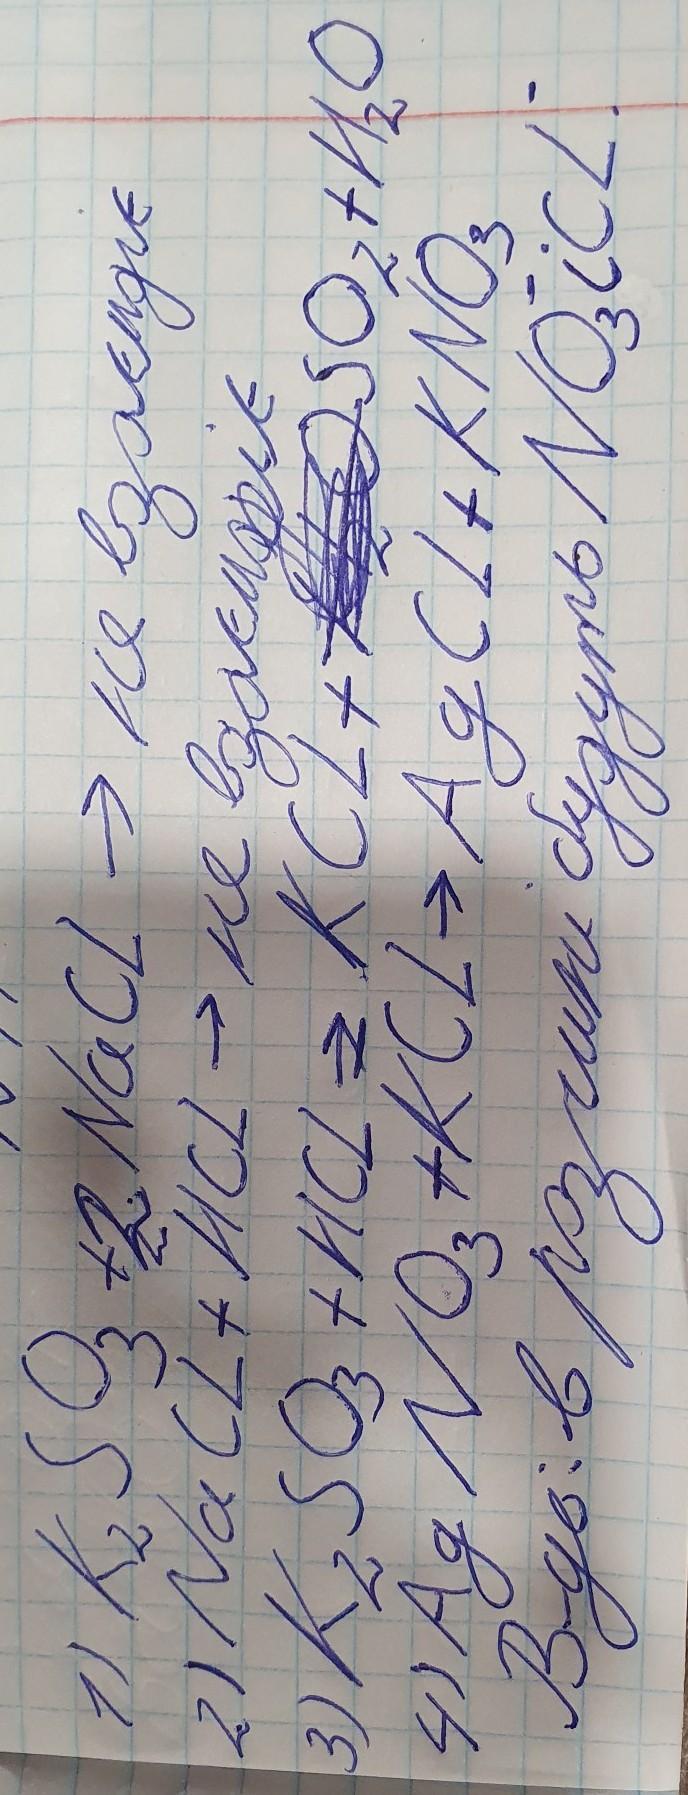 1) K₂SO₃ + 2NaCl → не взаємодіє
2) NaCl + HCl → не взаємодіє
3) K₂SO₃ + HCl = KCl + SO₂ + H₂O
4) AgNO₃ + KCl → AgCl + KNO₃
В-дь: в розчині будуть NO₃⁻ і Cl⁻.